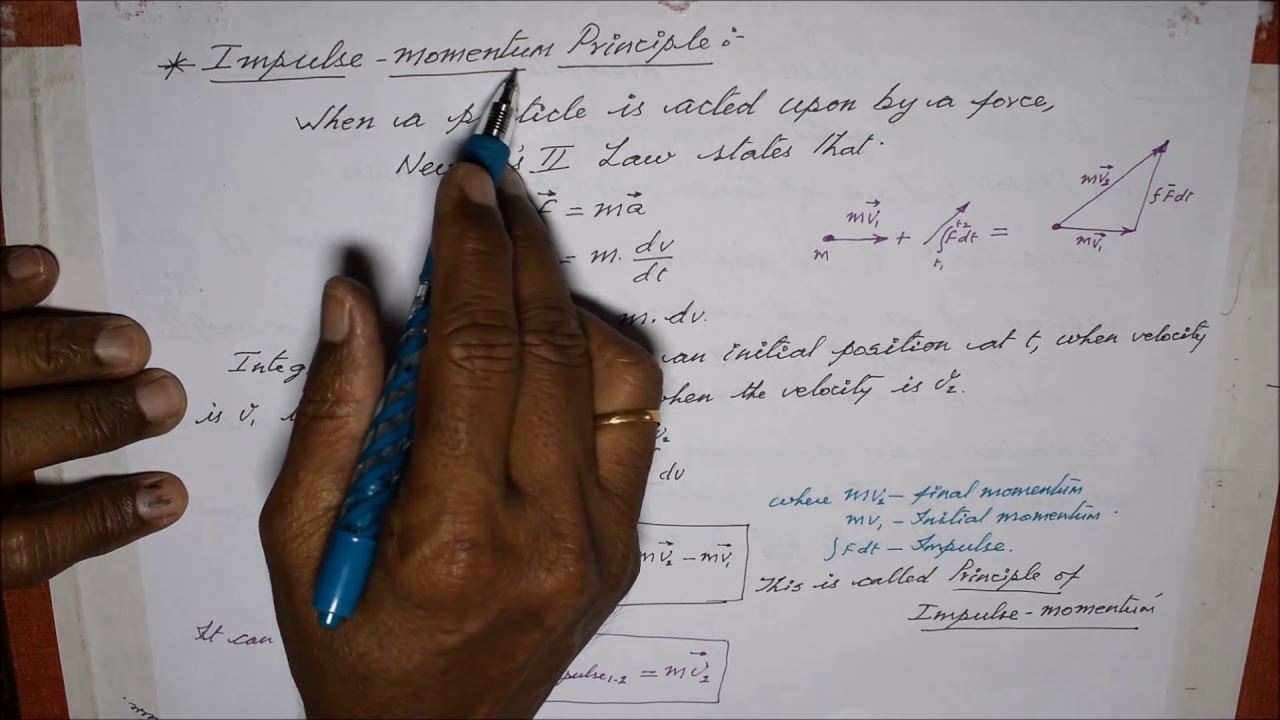 * Impulse - momentum Principle :-
When a particle is acted upon by a force,
Newton's II Law states that.
F⃗ = ma⃗
= m. dv/dt
m. dv.
an initial position at t, when velocity
is v̄₁
when the velocity is v̄₂.
v₂
dv
mv⃗₂ - mv⃗₁
It can
pulse₁₋₂ = mv⃗₂
mv⃗₁
m
+
∫t₁ t₂ F dt
=
mv⃗₂
∫F̄dt
mv⃗₁
where mv₂ - final momentum
mv₁ - Initial momentum.
∫Fdt - Impulse.
This is called Principle of
Impulse-momentum